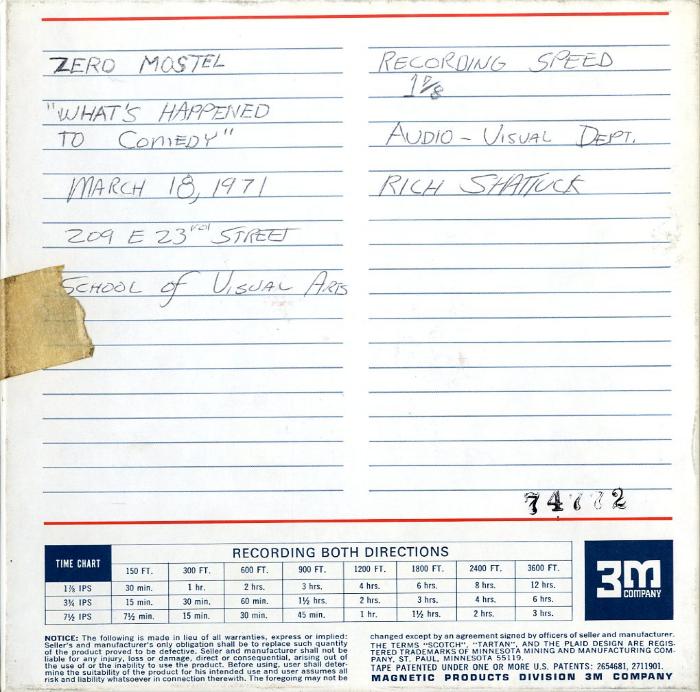 ZERO MOSTEL
"WHAT'S HAPPENED
TO COMEDY"
MARCH 18, 1971
209 E 23rd STREET
SCHOOL of VISUAL ARTS
RECORDING SPEED
1 7/8
AUDIO-VISUAL DEPT.
RICH SHATTUCK
74772
TIME CHART
RECORDING BOTH DIRECTIONS
150 FT. 300 FT. 600 FT. 900 FT. 1200 FT. 1800 FT. 2400 FT. 3600 FT.
1⅞ IPS 30 min. 1 hr. 2 hrs. 3 hrs. 4 hrs. 6 hrs. 8 hrs. 12 hrs.
3¾ IPS 15 min. 30 min. 60 min. 1½ hrs. 2 hrs. 3 hrs. 4 hrs. 6 hrs.
7½ IPS 7½ min. 15 min. 30 min. 45 min. 1 hr. 1½ hrs. 2 hrs. 3 hrs.
3M
COMPANY
NOTICE: The following is made in lieu of all warranties, express or implied:
Seller's and manufacturer's only obligation shall be to replace such quantity
of the product proved to be defective. Seller and manufacturer shall not be
liable for any injury, loss or damage, direct or consequential, arising out of
the use of or the inability to use the product. Before using, user shall deter-
mine the suitability of the product for his intended use and user assumes all
risk and liability whatsoever in connection therewith. The foregoing may not be
changed except by an agreement signed by officers of seller and manufacturer.
THE TERMS "SCOTCH", "TARTAN", AND THE PLAID DESIGN ARE REGIS-
TERED TRADEMARKS OF MINNESOTA MINING AND MANUFACTURING COM-
PANY, ST. PAUL, MINNESOTA 55119.
TAPE PATENTED UNDER ONE OR MORE U.S. PATENTS: 2654681, 2711901.
MAGNETIC PRODUCTS DIVISION 3M COMPANY